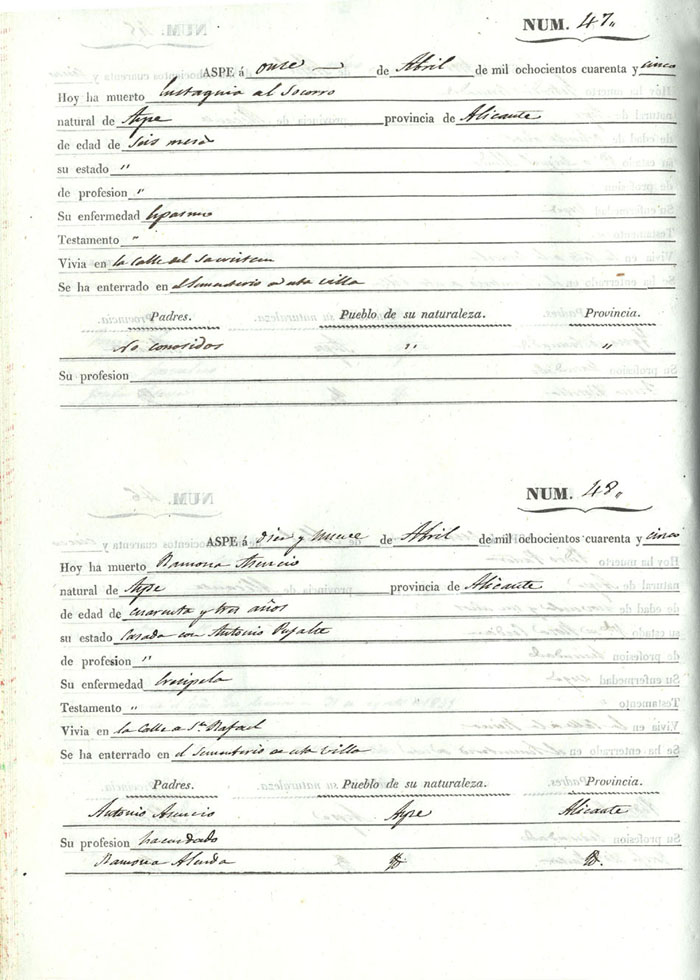 NUM. 47.
ASPE á onse de Abril de mil ochocientos cuarenta y cinco
Hoy ha muerto Eustaquia al Socorro
natural de Aspe provincia de Alicante
de edad de Seis mese
su estado "
de profesion "
Su enfermedad Espasmo
Testamento "
Vivia en la Calle del Sacristan
Se ha enterrado en el Sementerio de esta villa
Padres. Pueblo de su naturaleza. Provincia.
No conosidos " "
Su profesion
NUM. 48.
ASPE á dies y nueve de Abril de mil ochocientos cuarenta y cinco
Hoy ha muerto Ramona Asencio
natural de Aspe provincia de Alicante
de edad de cuarenta y tres años
su estado Casada con Antonio Pujalte
de profesion "
Su enfermedad Erisipela
Testamento "
Vivia en la Calle de Sn. Rafael
Se ha enterrado en el Sementerio de esta villa
Padres. Pueblo de su naturaleza. Provincia.
Antonio Asencio Aspe Alicante
Su profesion hacendado
Ramona